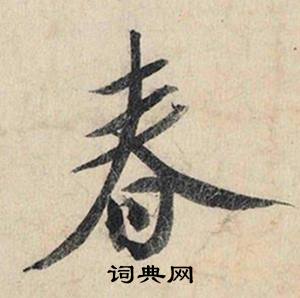 春
词典网